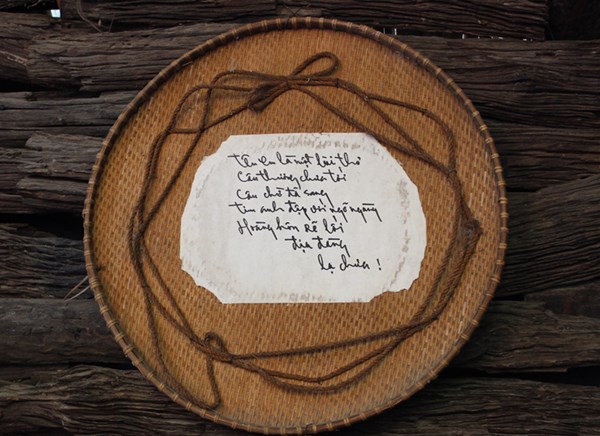 Tên em là một lời thơ
Câu thương chưa tới
Câu chờ đã sang
Tim anh đập với ngỡ ngàng
Hoàng hôn rẽ lối
địa đàng
lạ chưa !